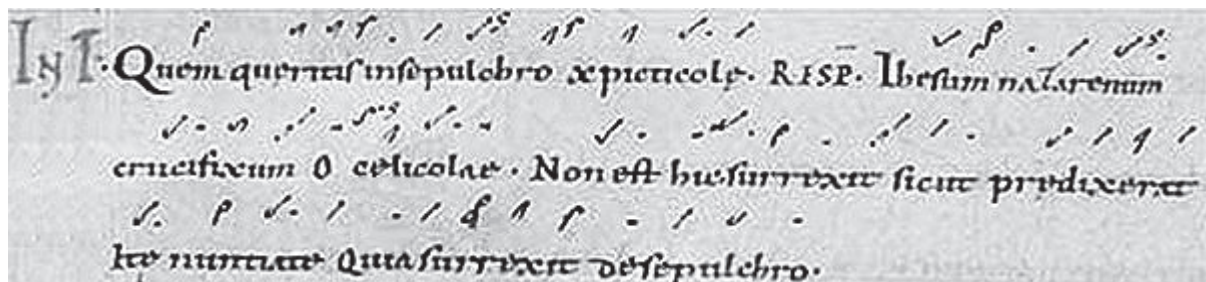 INT. Quem queritis in sepulchro xpicticole. RESP. Ihesum nazarenum
crucifixum o celicolae. Non est hic surrexit sicut predixerat
Ite nuntiate quia surrexit de sepulchro.